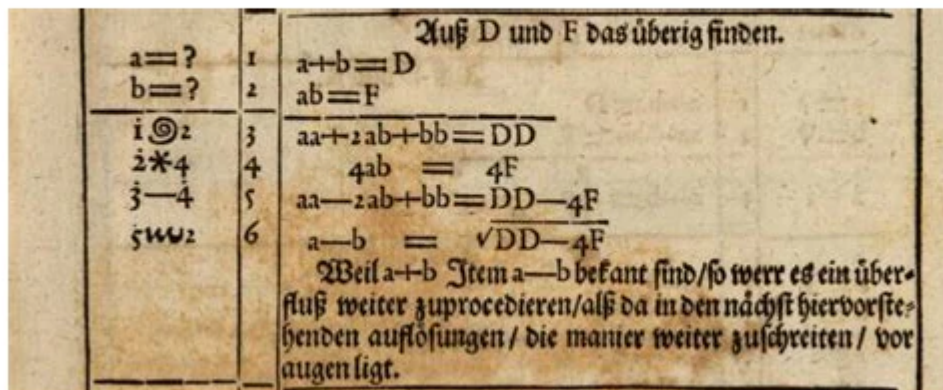 Auß D und F das überig finden.
a=? 1 a+b=D
b=? 2 ab=F
1@2 3 aa+2ab+bb=DD
2*4 4 4ab = 4F
3—4 5 aa—2ab+bb=DD—4F
5ω2 6 a—b = √DD—4F
Weil a+b Item a—b bekant sind/so werr es ein über-
fluß weiter zuprocedieren/alß da in den nächst hiervorste-
henden auflösungen/ die manier weiter zuschreiten/ vor
augen ligt.